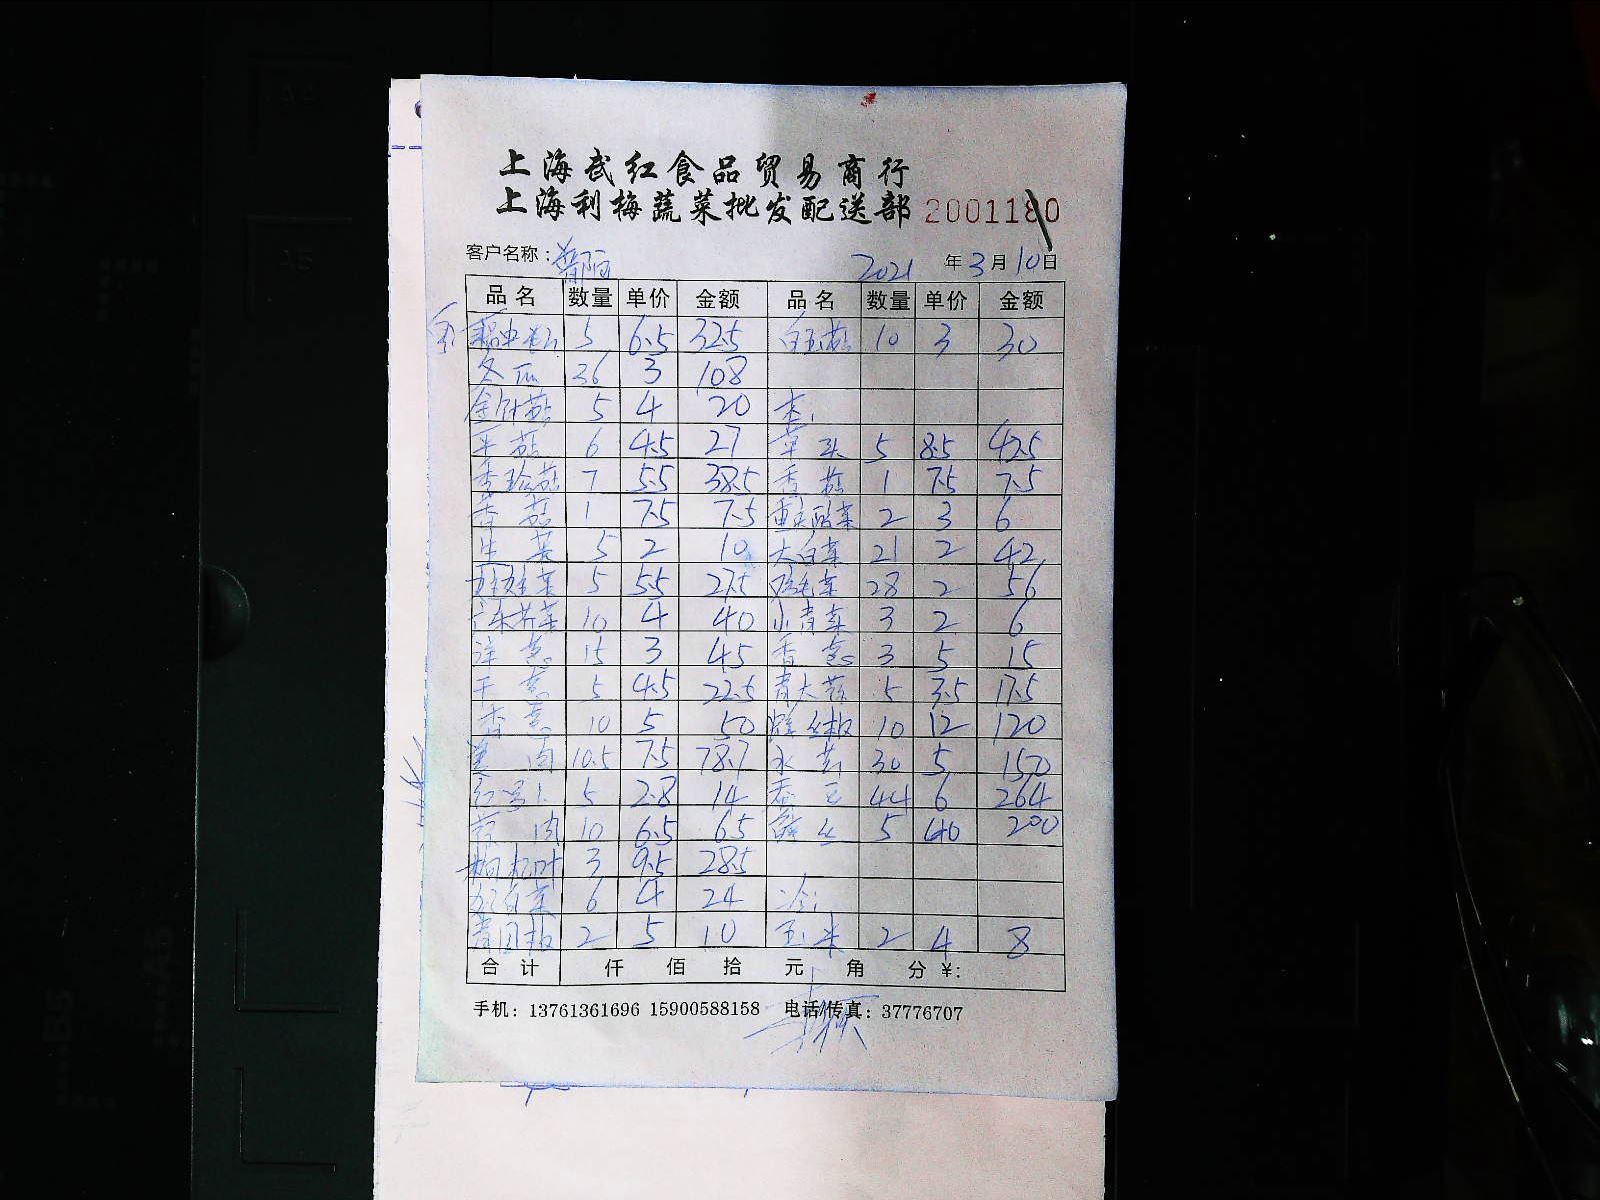 上海武红食品贸易商行
上海利梅蔬菜批发配送部 2001180
客户名称： 2021 年 3 月 10 日
品名 数量 单价 金额 品名 数量 单价 金额
5 6.5 32.5 白玉菇 10 3 30
冬瓜 36 3 108
金针菇 5 4 20
平菇 6 4.5 27 草头 5 8.5 42.5
秀珍菇 7 5.5 38.5 香菇 1 7.5 7.5
香菇 1 7.5 7.5 重庆酸菜 2 3 6
生菜 5 2 10 大白菜 21 2 42
娃娃菜 5 5.5 27.5 鸡毛菜 28 2 56
广东芥菜 10 4 40 小青菜 3 2 6
洋葱 15 3 45 香葱 3 5 15
干葱 5 4.5 22.5 青大蒜 5 3.5 17.5
香葱 10 5 50 螺丝椒 10 12 120
姜肉 10.5 7.5 78.7 水芹 30 5 150
5 2.8 14 44 6 264
蒜肉 10 6.5 65 5 40 200
3 9.5 28.5
6 4 24 冷：
青圆椒 2 5 10 玉米 2 4 8
合计 仟 佰 拾 元 角 分 ¥:
手机：13761361696 15900588158 电话/传真：37776707